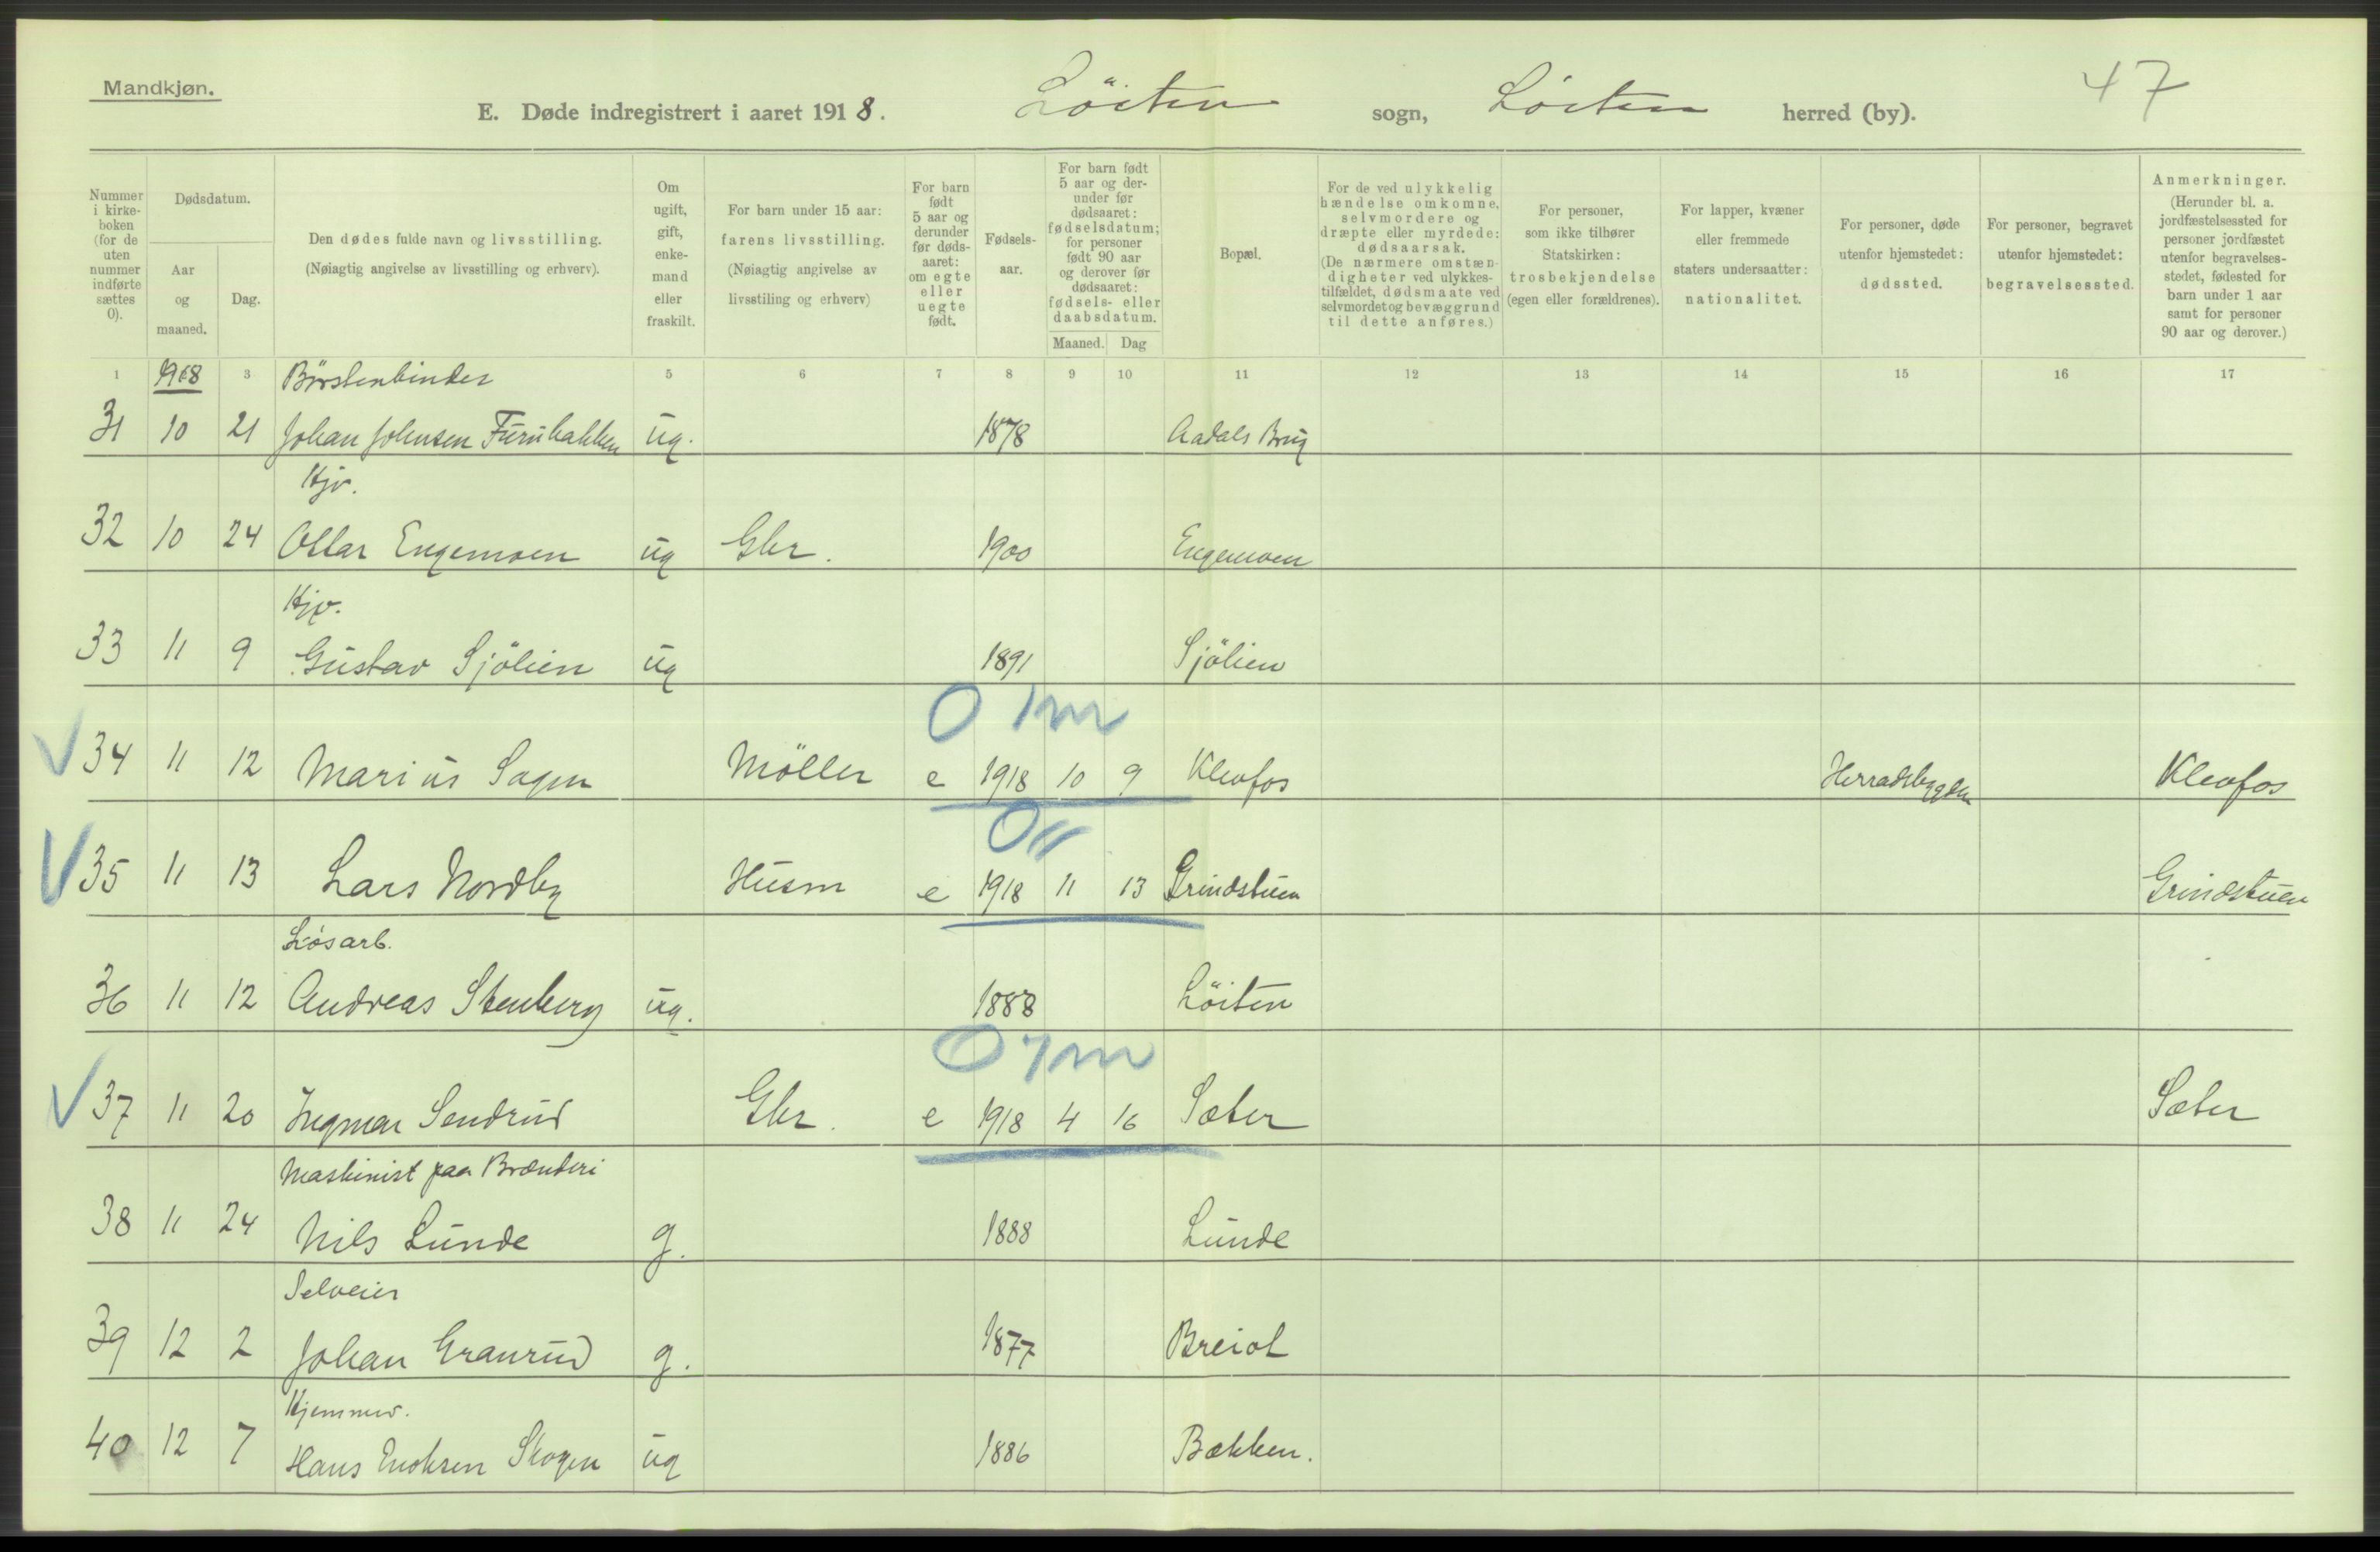 Mandkjøn.
47
E. Døde indregistrert i aaret 1918. Löiten sogn, Löiten herred (by).
Nummer i kirke-boken (for de uten nummer indførte sættes 0).
Dødsdatum.
Aar og maaned.
Dag.
Den dødes fulde navn og livsstilling.
(Nøiagtig angivelse av livsstilling og erhverv).
Om ugift, gift, enke-mand eller fraskilt.
For barn under 15 aar: farens livsstilling.
(Nøiagtig angivelse av livsstiling og erhverv)
For barn født 5 aar og derunder før døds-aaret: om egte eller uegte født.
Fødsels-aar.
For barn født 5 aar og der-under før dødsaaret: fødselsdatum; for personer født 90 aar og derover før dødsaaret: fødsels- eller daabsdatum.
Maaned. Dag
Bopæl.
For de ved ulykkelig hændelse omkomne, selvmordere og dræpte eller myrdede: dødsaarsak.
(De nærmere omstæn-digheter ved ulykkes-tilfældet, dødsmaate ved selvmordet og bevæggrund til dette anføres.)
For personer, som ikke tilhører Statskirken: trosbekjendelse (egen eller forældrenes).
For lapper, kvæner eller fremmede staters undersaatter: nationalitet.
For personer, døde utenfor hjemstedet: dødssted.
For personer, begravet utenfor hjemstedet: begravelsessted.
Anmerkninger.
(Herunder bl. a. jordfæstelsessted for personer jordfæstet utenfor begravelses-stedet, fødested for barn under 1 aar samt for personer 90 aar og derover.)
1 1918 3 Börstenbinder 5 6 7 8 9 10 11 12 13 14 15 16 17
31 10 21 Johan Johnsen Furubakken ug. 1878 Aadals Brug
Hjv.
32 10 24 Ottar Engemoen ug Gbr. 1900 Engemoen
Hjv.
33 11 9 Gustav Sjölien ug 1891 Sjölien
0 1 m
V 34 11 12 Marius Sagen Möller e 1918 10 9 Klevfos Herradsbygden Klevfos
0 11
V 35 11 13 Lars Nordby Husm e 1918 11 13 Grindstuen Grindstuen
Løsarb.
36 11 12 Andreas Stenberg ug. 1888 Löiten
0 7 m
V 37 11 20 Ingmar Sendrud Gbr. e 1918 4 16 Sæter Sæter
Maskinist paa Brænderi
38 11 24 Nils Lunde g. 1888 Lunde
Selveier
39 12 2 Johan Granrud g. 1877 Breiot
Hjemmev.
40 12 7 Hans Enoksen Skogen ug 1886 Bækken.